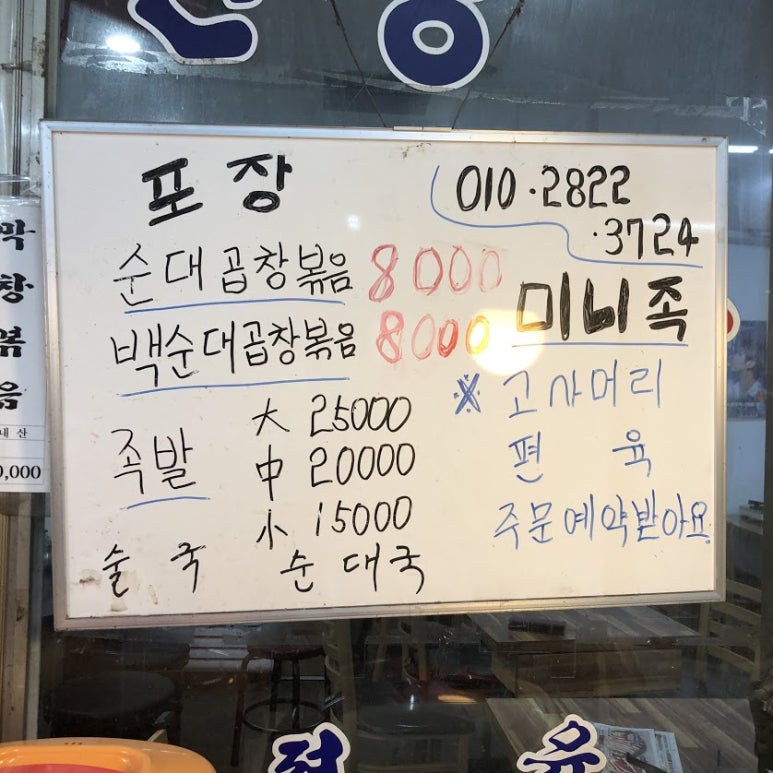 포장
010·2822
·3724
순대곱창볶음 8000
백순대곱창볶음 8000
미니족
족발 大 25000
中 20000
小 15000
술국 순대국
※ 고사머리
편육
주문예약받아요
막창볶음
내산
0,000